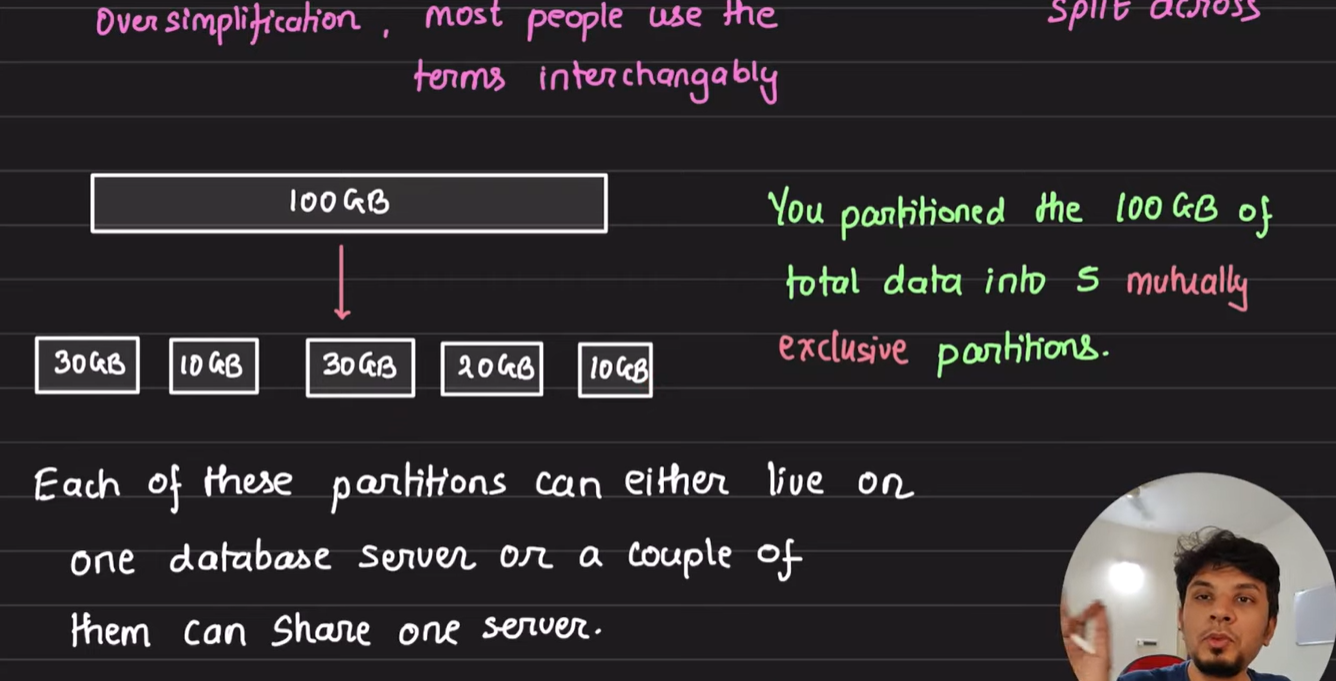 Over simplification, most people use the
terms interchangably
split across
100 GB
30 GB 10 GB 30 GB 20 GB 10 GB
You partitioned the 100 GB of
total data into 5 mutually
exclusive partitions.
Each of these partitions can either live on
one database server or a couple of
them can share one server.